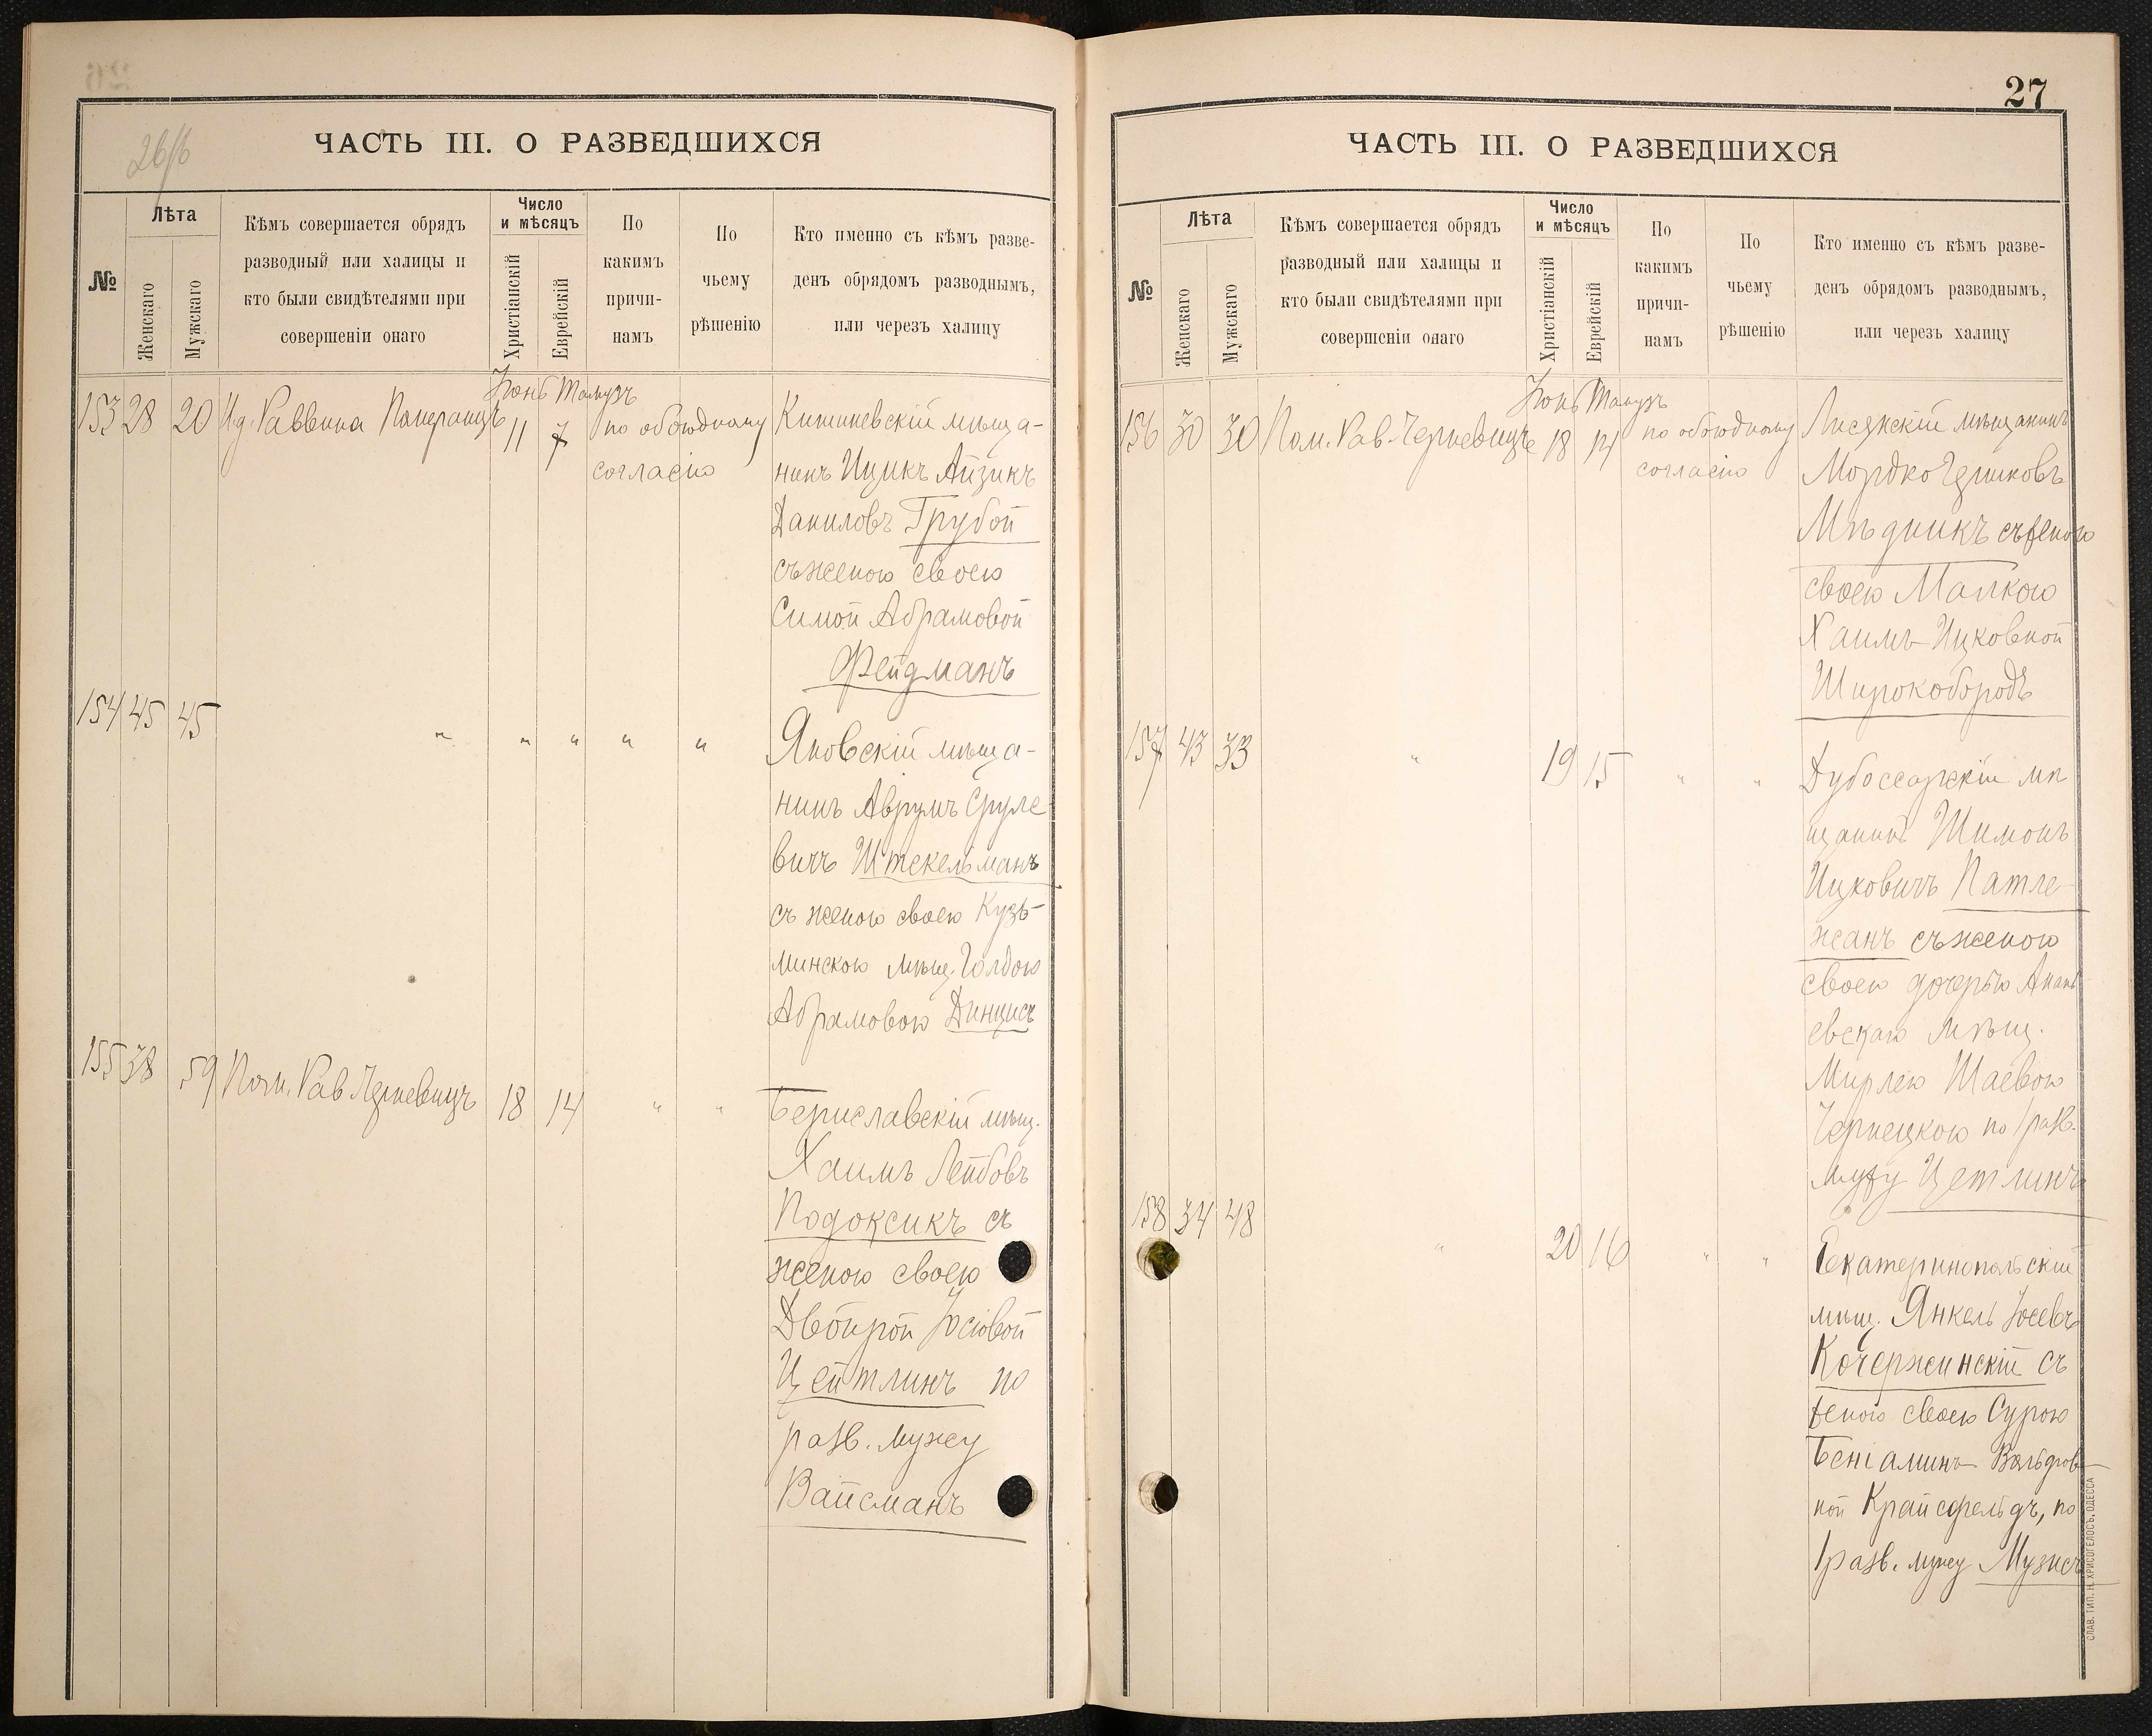 26/б
ЧАСТЬ III. О РАЗВЕДШИХСЯ
№
Лѣта
Женскаго
Мужскаго
Кѣмъ совершается обрядъ
разводный или халицы и
кто были свидѣтелями при
совершеніи онаго
Число
и мѣсяцъ
Христіанскій
Еврейскій
По
какимъ
причи-
намъ
По
чьему
рѣшенію
Кто именно съ кѣмъ разве-
денъ обрядомъ разводнымъ,
или черезъ халицу
Іюнь Тамузъ
153 28 20 И.д. Раввина 11 7 по обоюдному Кишиневскій мѣща-
согласію нинъ Ицикъ Айзикъ
Даниловъ Трубой
съ женою своею
Симой Абрамовой
Фейдманъ
154 45 45 " " " " " Яновскій мѣща-
нинъ Аврумъ Сруле-
вичъ Штекельманъ
съ женою своею Кузь-
минскою мѣщ. Голдою
Абрамовою Динцисъ
155 38 59 Пом. Рав. Черневицъ 18 14 " " Бериславскій мѣщ.
Хаимъ Лейбовъ
Подоксикъ съ
женою своею
Двойрой Іосіовой
Цейтлинъ по
разв. мужу
Вайсманъ
27
ЧАСТЬ III. О РАЗВЕДШИХСЯ
№
Лѣта
Женскаго
Мужскаго
Кѣмъ совершается обрядъ
разводный или халицы и
кто были свидѣтелями при
совершеніи онаго
Число
и мѣсяцъ
Христіанскій
Еврейскій
По
какимъ
причи-
намъ
По
чьему
рѣшенію
Кто именно съ кѣмъ разве-
денъ обрядомъ разводнымъ,
или черезъ халицу
Іюнь Тамузъ
156 30 30 Пом. Рав. Черневицъ 18 14 по обоюдному Лисянскій мѣщанинъ
согласію Мордко Гершковъ
Мѣдникъ съ женою
своею Малкою
Хаимъ-Ицковной
Широкобородъ
157 43 33 " 19 15 " " Дубоссарскій мѣ
щанинъ Шимонъ
Ицковичъ Патле-
жанъ съ женою
своею дочерью Анань
евскаго мѣщ.
Мирлею Шаевою
Чернецкою по 1 разв.
мужу Цетлинъ
158 34 48 " 20 16 " " Екатеринопольскій
мѣщ. Янкель Іосевъ
Кочержинскій съ
женою своею Сурою
Беніаминъ-Вольфов-
ной Крайсфельдъ, по
1 разв. мужу Музисъ
СЛАВ. ТИП. Н. ХРИСОГЕЛОСЪ, ОДЕССА